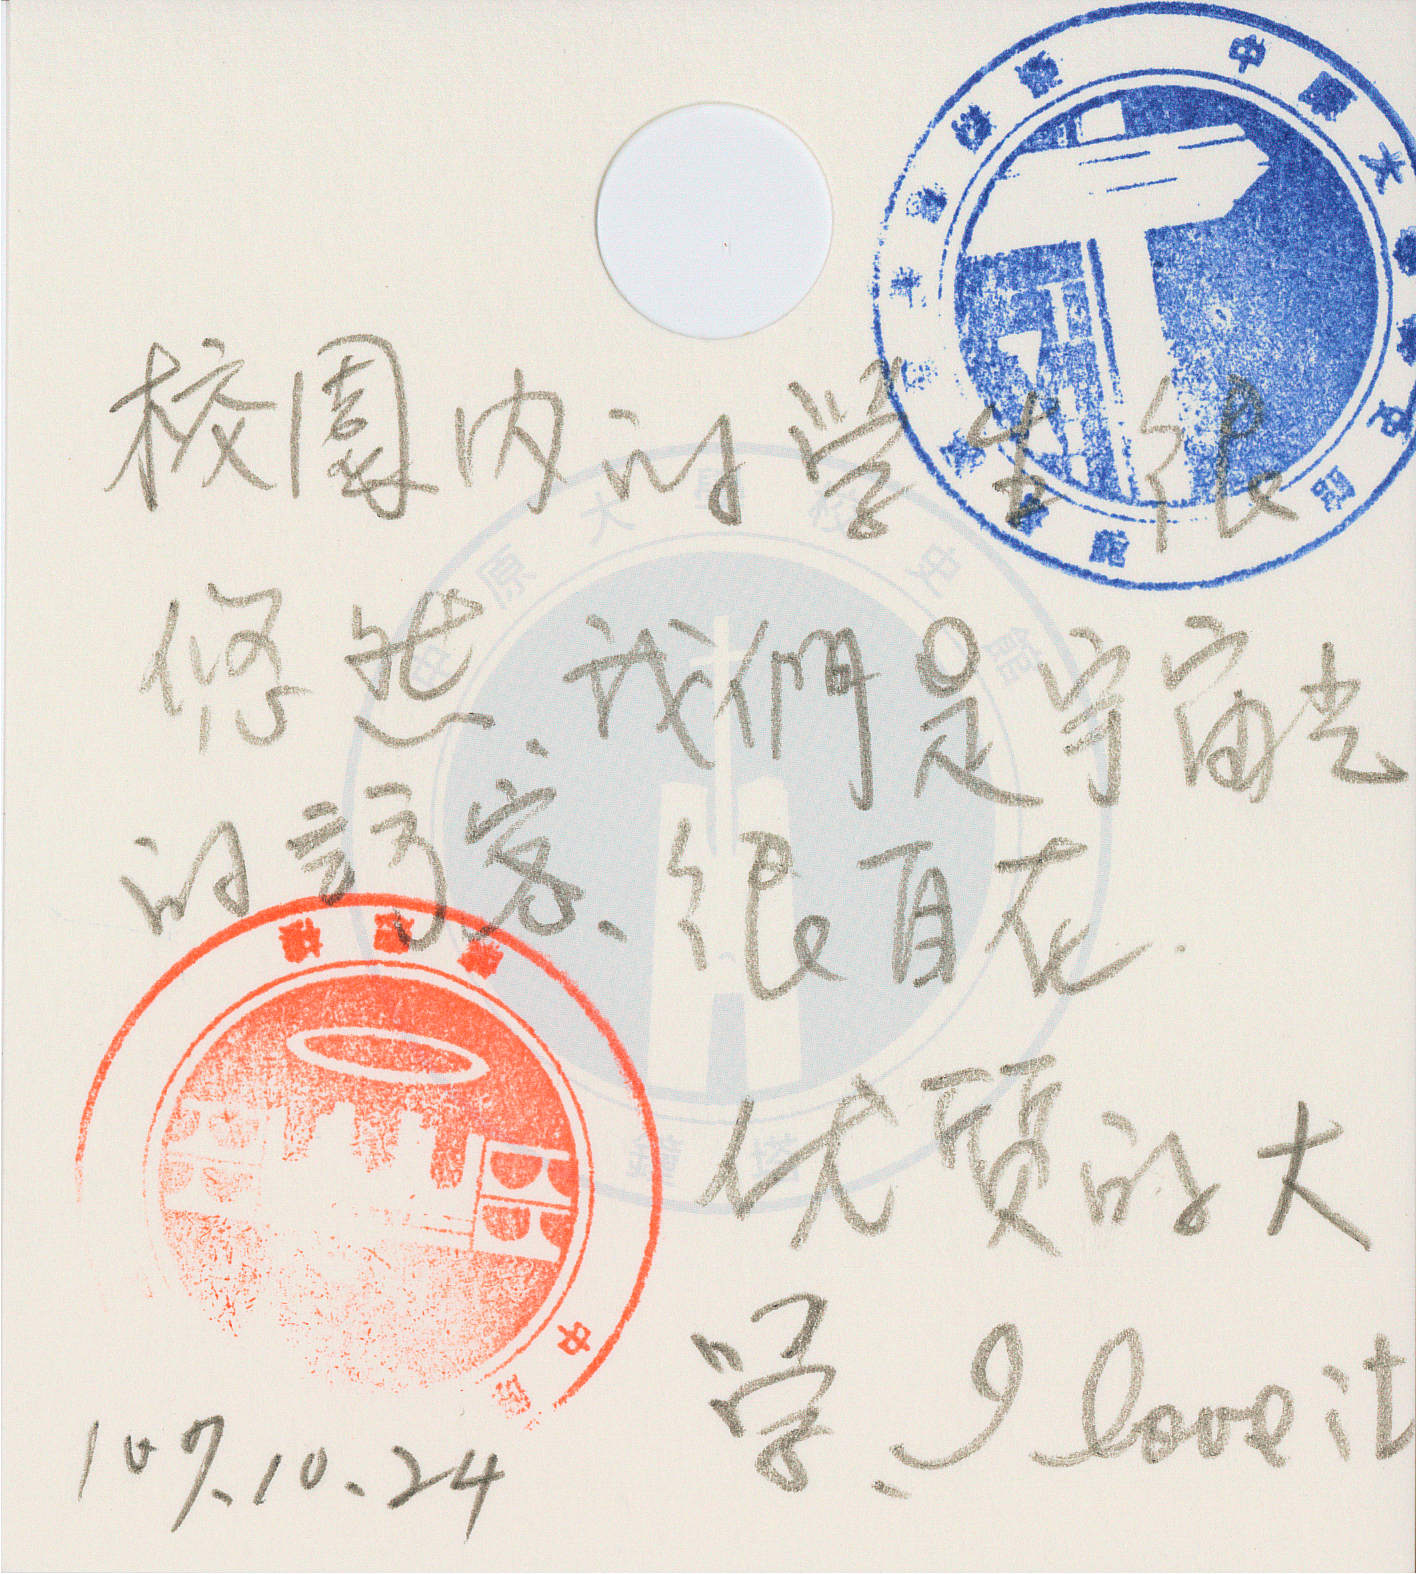 中原大
校園内的学生很
悠然、我們是宇宙光
的訪客、很自在.
优質的大
学、I love it
107.10.24
中原大學校史館
鐘塔
中原